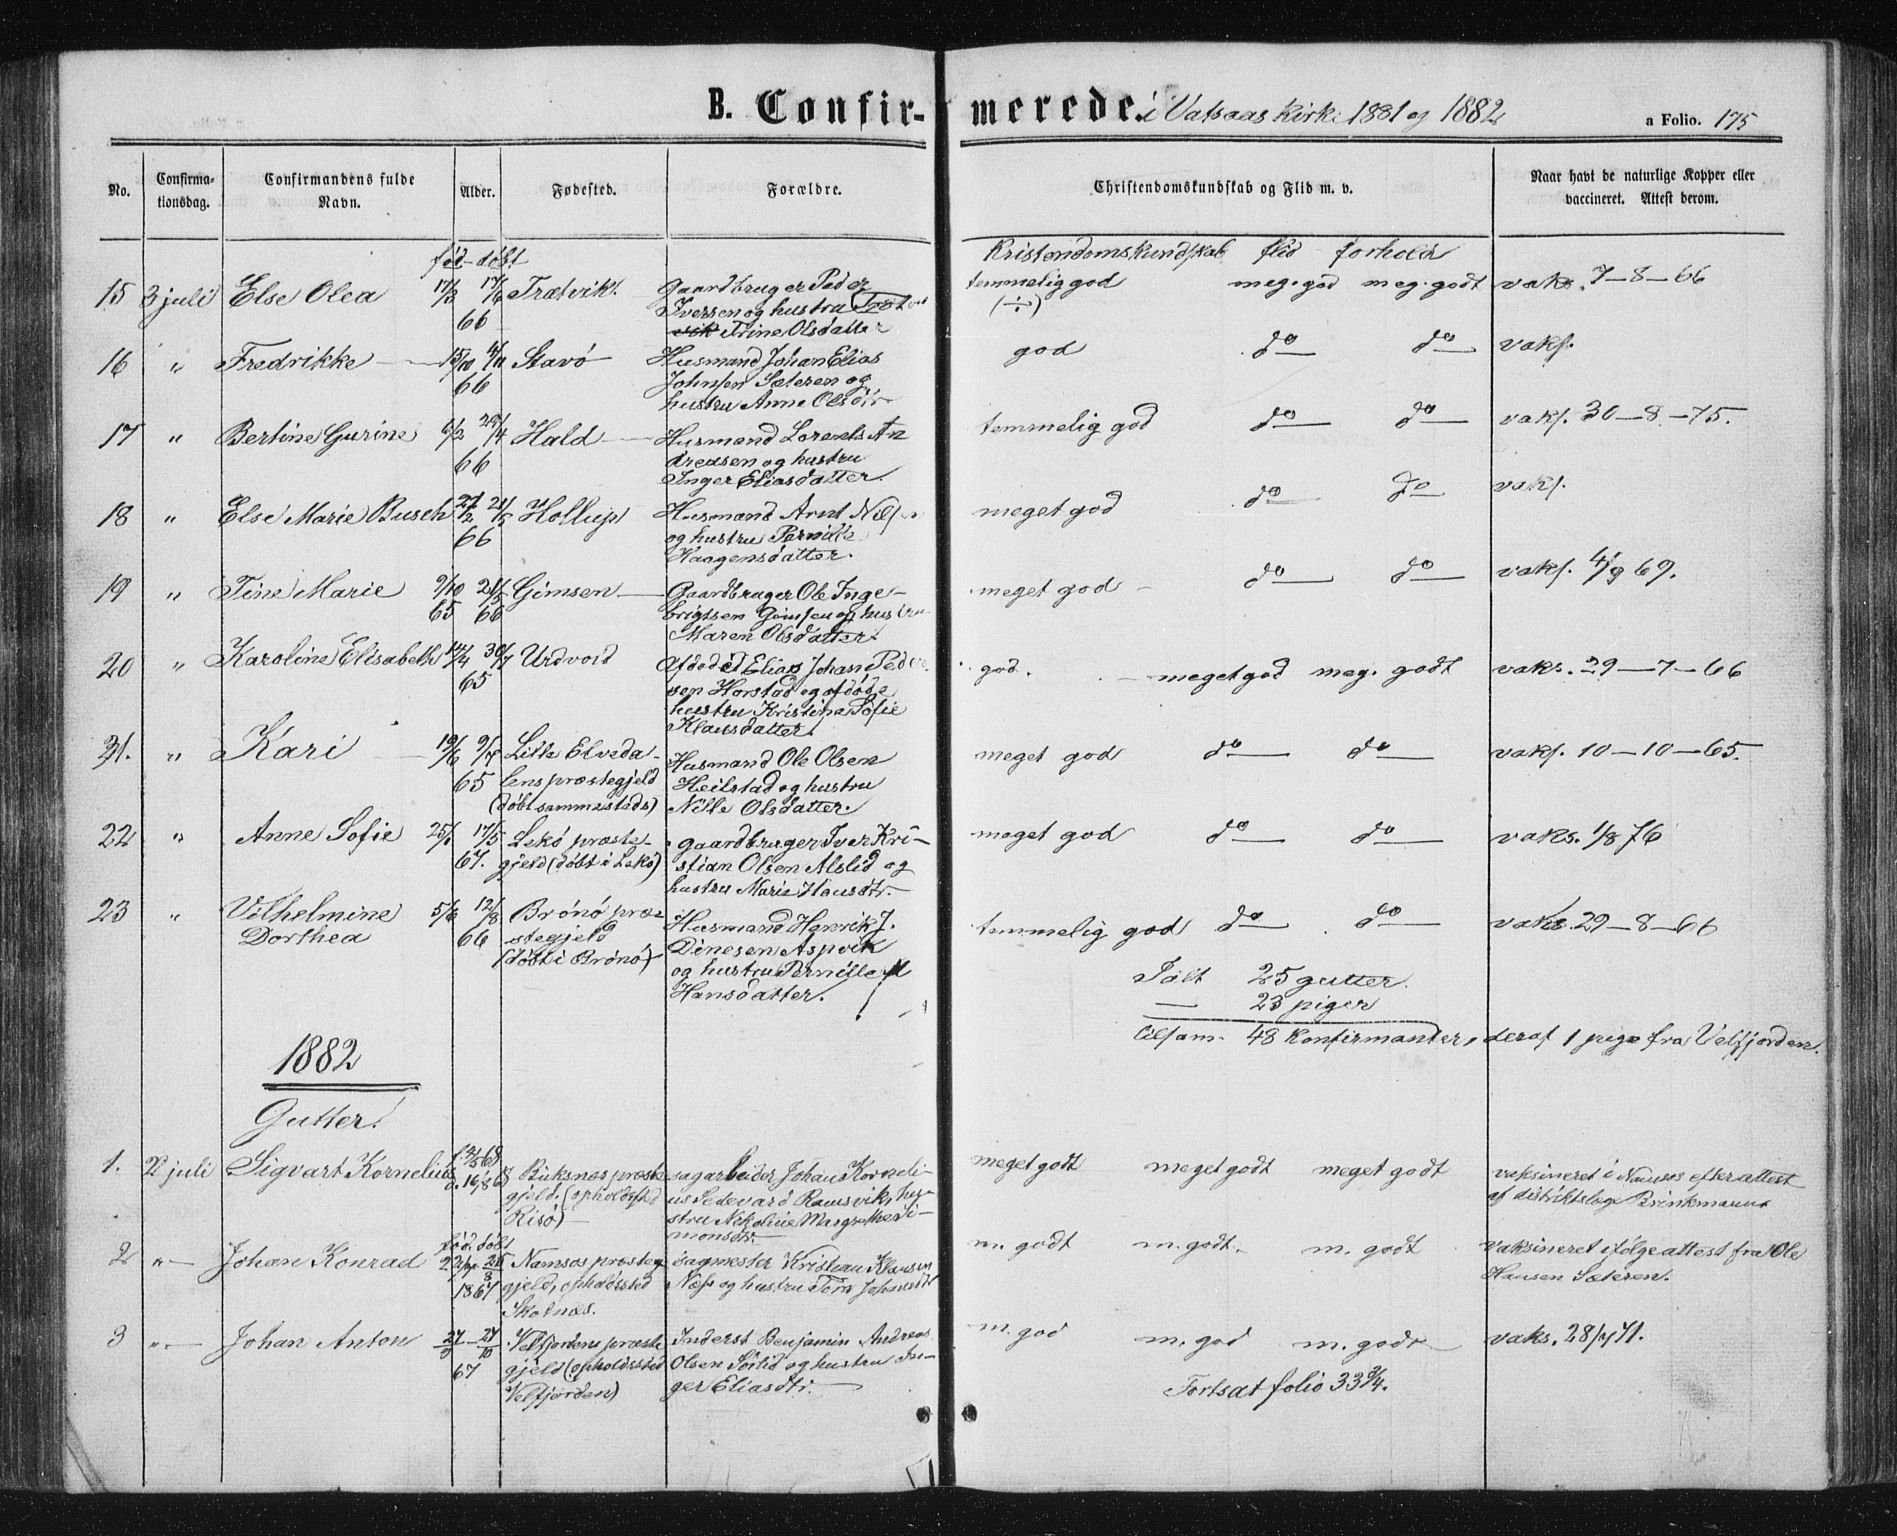 B. Confir-merede. i Vatsaas kirke 1881 og 1882
a Folio. 175
No.
Confirma-
tionsdag.
Confirmandens fulde
Navn.
Alder.
Fødested.
Forældre.
Christendomskundskab og Flid m. v.
Naar havt de naturlige Kopper eller
vaccineret. Attest derom.
fød - døbt
Kristendomskundskab flid forhold
15 3 juli Else Olea 17/3 17/6 Trætvik. Gaardbruger Peder temmelig god meg. god meg. godt vaks. 7-8-66
66 Iversen og hustru (÷)
Trine Olsdatter
16 " Fredrikke 15/10 4/11 Stavø Husmand Johan Elias god do do vaks.
66 Johnsen Sæteren og
hustru Anne Olsdtr
17 " Bertine Gurine 6/2 29/4 Hald Husmand Lorents An temmelig god do do vaks. 30-8-75.
66 dreasen og hustru
Inger Eliasdatter.
18 " Else Marie Busch 27/2 21/5 Hollup Husmand Arnt Nils meget god do do vaks.
66 og hustru Pernille
Haagensdatter.
19 " Tine Marie 9/10 21/5 Gimsen Gaardbruger Ole Inge- meget god do do vaks. 4/9 69.
65 66 brigtsen Gimsen og hustru
Maren Olsdatter
20 " Karoline Elisabeth 14/4 30/7 Urdvoid Afdød Elias Johan Peder god. meget god meg. godt vaks. 29-7-66
65 sen Horstad og afdøde
hustru Kristina Sofie
Klausdatter
21. " Kari 19/6 9/7 Lille Elveda- Husmand Ole Olsen meget god do do vaks. 10-10-65.
65 lens præstegjeld Heilstad og hustru
(døbt sammesteds) Nille Olsdatter.
22 " Anne Sofie 25/1 17/5 Lekø præste- gaardbruger Iver Kri- meget god do do vaks. 1/8 76
67. gjeld (døbt i Lekø) stian Olsen Alslid og
hustru Marie Hansdtr.
23 " Vilhelmine 5/6 12/8 Brønø præ- Husmand Henrik J. temmelig god do do vaks. 29-8-66
Dorthea 66 stegjeld Dinesen Aspvik
(døbt i Brønø) og hustru Pernille
Hansdatter.
Ialt 25 gutter.
— 23 piger
tilsam. 48 konfirmanter, deraf 1 pige fra Velfjorden.
1882
Gutter.
1. 2 juli Sigvart Kornelius Buksnes præste sagarbeider Johan Korneli- meget godt meget godt meget godt vaksineret i Namsos efter attest
16/8 gjeld. (opholdssted us Sedevard Ramsvik, hu- af distriktslæge Brinkmann
Risø) stru Nikoline Margrethe Si-
monsdtr.
fød. døbt
2 " Johan Konrad Namsos præste sagmester Kristian Klausen m. godt m. godt. m. godt vaksineret ifølge attest fra Ole
1867 gjeld, opholdssted Næss og hustru Tora Johnsdtr Hansen Sæteren.
Skotnæs.
3 " Johan Anton 27/10 Velfjordens præste Inderst Benjamin Andreas m. god m. god m. godt vaks. 28/7 71.
67 gjeld (opholdssted Olsen Sørlid og hustru In-
Velfjorden) ger Eliasdtr.
Fortsat folio 33 3/4.